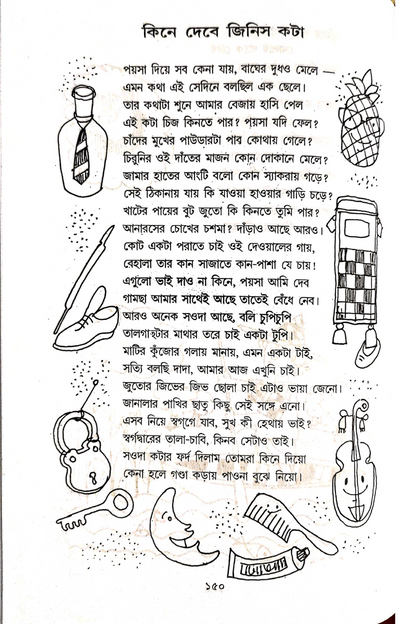 কিনে দেবে জিনিস কটা
পয়সা দিয়ে সব কেনা যায়, বাঘের দুধও মেলে —
এমন কথা এই সেদিনে বলছিল এক ছেলে।
তার কথাটা শুনে আমার বেজায় হাসি পেল
এই কটা চিজ কিনতে পার? পয়সা যদি ফেল?
চাঁদের মুখের পাউডারটা পাব কোথায় গেলে?
চিরুনির ওই দাঁতের মাজন কোন দোকানে মেলে?
জামার হাতের আংটি বলো কোন স্যাকরায় গড়ে?
সেই ঠিকানায় যায় কি যাওয়া হাওয়ার গাড়ি চড়ে?
খাটের পায়ের বুট জুতো কি কিনতে তুমি পার?
আনারসের চোখের চশমা? দাঁড়াও আছে আরও।
কোট একটা পরাতে চাই ওই দেওয়ালের গায়,
বেহালা তার কান সাজাতে কান-পাশা যে চায়!
এগুলো ভাই দাও না কিনে, পয়সা আমি দেব
গামছা আমার সাথেই আছে তাতেই বেঁধে নেব।
আরও অনেক সওদা আছে, বলি চুপিচুপি
তালগাছটার মাথার তরে চাই একটা টুপি।
মাটির কুঁজোর গলায় মানায়, এমন একটা টাই,
সত্যি বলছি দাদা, আমার আজ এখুনি চাই।
জুতোর জিভের জিভ ছোলা চাই এটাও ভায়া জেনো।
জানালার পাখির ছাতু কিছু সেই সঙ্গে এনো।
এসব নিয়ে স্বগ্‌গে যাব, সুখ কী হেথায় ভাই?
স্বর্গদ্বারের তালা-চাবি, কিনব সেটাও তাই।
সওদা কটার ফর্দ দিলাম তোমরা কিনে দিয়ো
কেনা হলে গণ্ডা কড়ায় পাওনা বুঝে নিয়ো।
১৫০